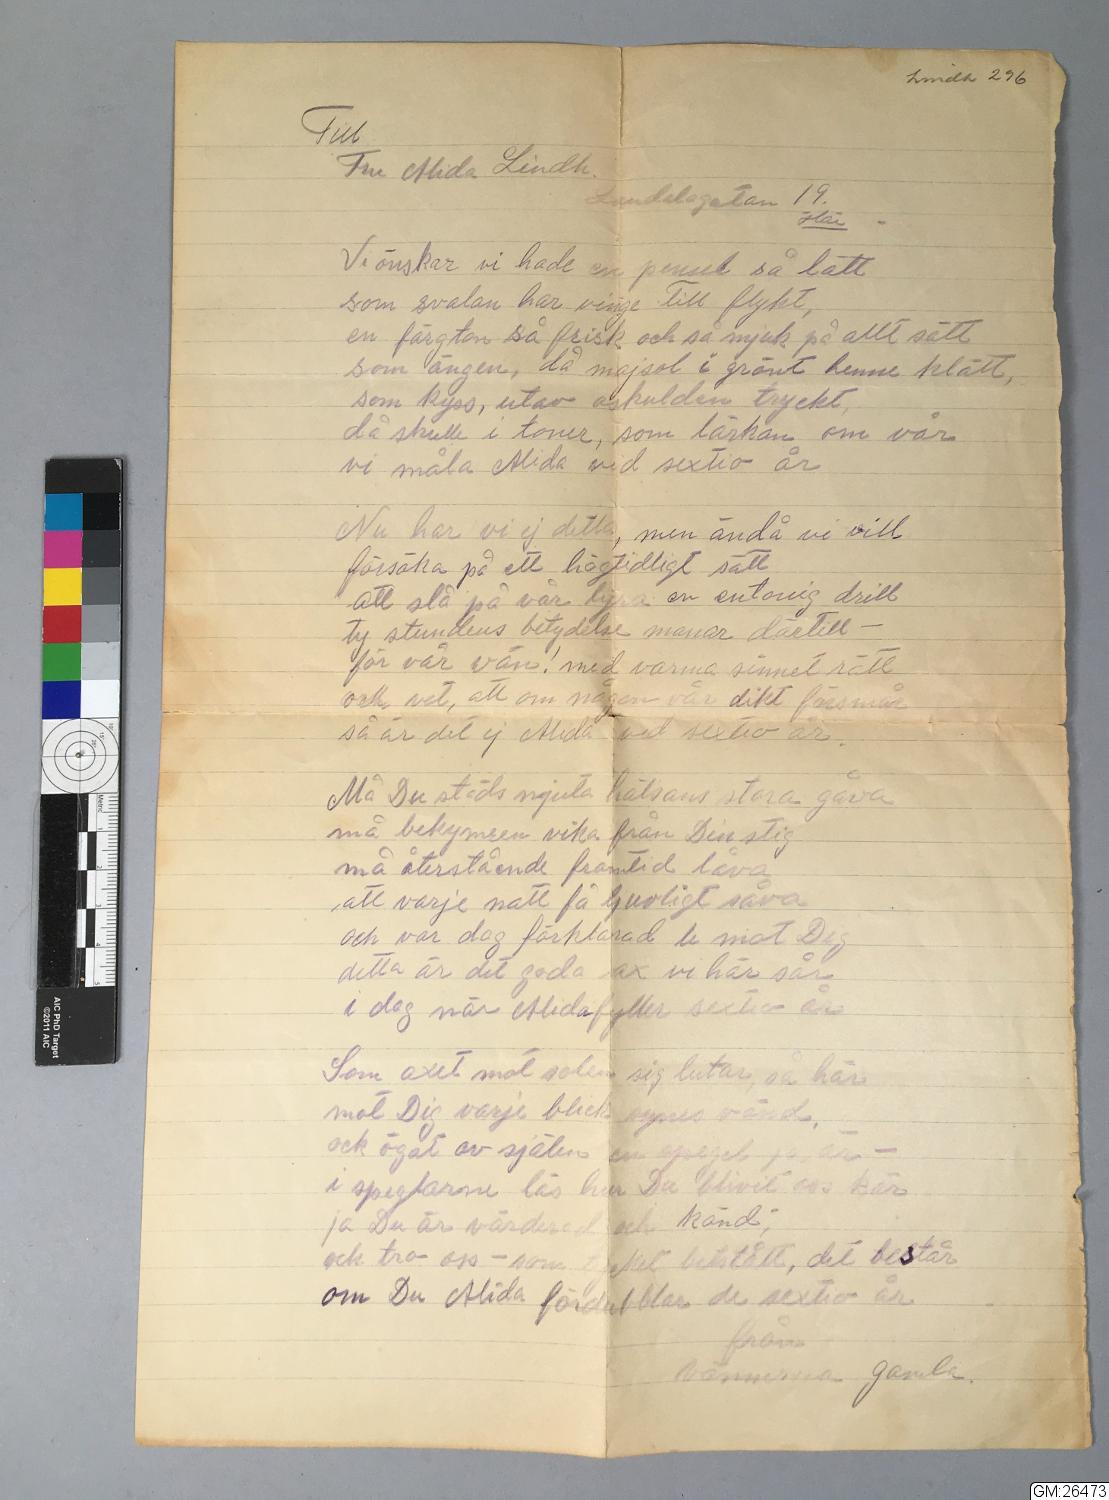 Lindh 296
Till
Fru Alida Lindh.
Landalagatan 19.
Här
Vi önskar vi hade en pensel så lätt
som svalan har vinge till flykt,
en färgton så frisk och så mjuk på allt sätt
som ängen, då majsol i grönt henne klätt,
som kyss, utav oskulden tryckt,
då skulle i toner, som lärkan om vår
vi måla Alida vid sextio år
Nu har vi ej detta, men ändå vi vill
försöka på ett högtidligt sätt
att slå på vår lyra en entonig drill
ty stundens betydelse manar därtill –
för vår vän! med varma sinnet rätt
och vet, att om någon vår dikt försmår
så är det ej Alida vid sextio år.
Må Du städs njuta hälsans stora gåva
må bekymren vika från Din stig
må återstående framtid låva
att varje natt få ljuvligt såva
och var dag förklarad le mot Dig
detta är det goda ax vi här sår
i dag när Alida fyller sextio år
Som axet mot solen sig lutar, så här
mot Dig varje blick synes vänd,
ock ögat av själen en spegel ju är –
i speglarne läs hur Du blivit oss kär
ja Du är värderad och känd;
ock tro oss – som det bestått, det består
om Du Alida fördubblar de sextio år
från
Vännerna gamla.
AIC PhD Target
©2011 AIC
Metric
GM:26473